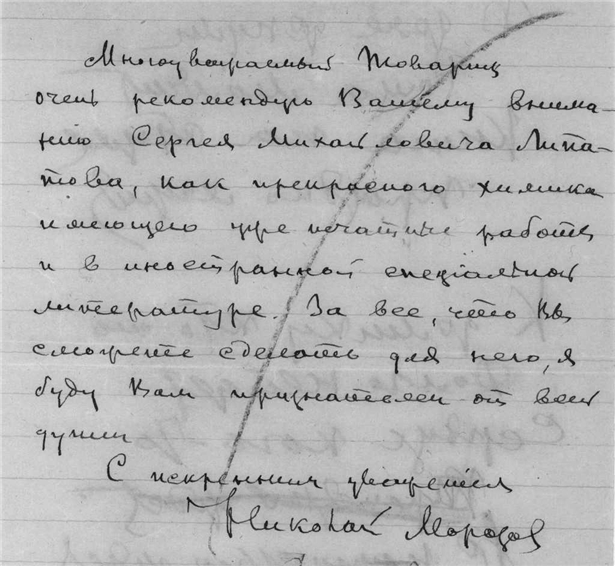 Многоуважаемый Товарищ
очень рекомендую Вашему внима-
нию Сергея Михайловича Липа-
това, как прекрасного химика
имеющего уже печатные работы
и в иностранной спеціальной
литературе. За все, что Вы
сможете сделать для него, я
буду Вам признателен от всей
души
С искренним уважением
Николай Морозов